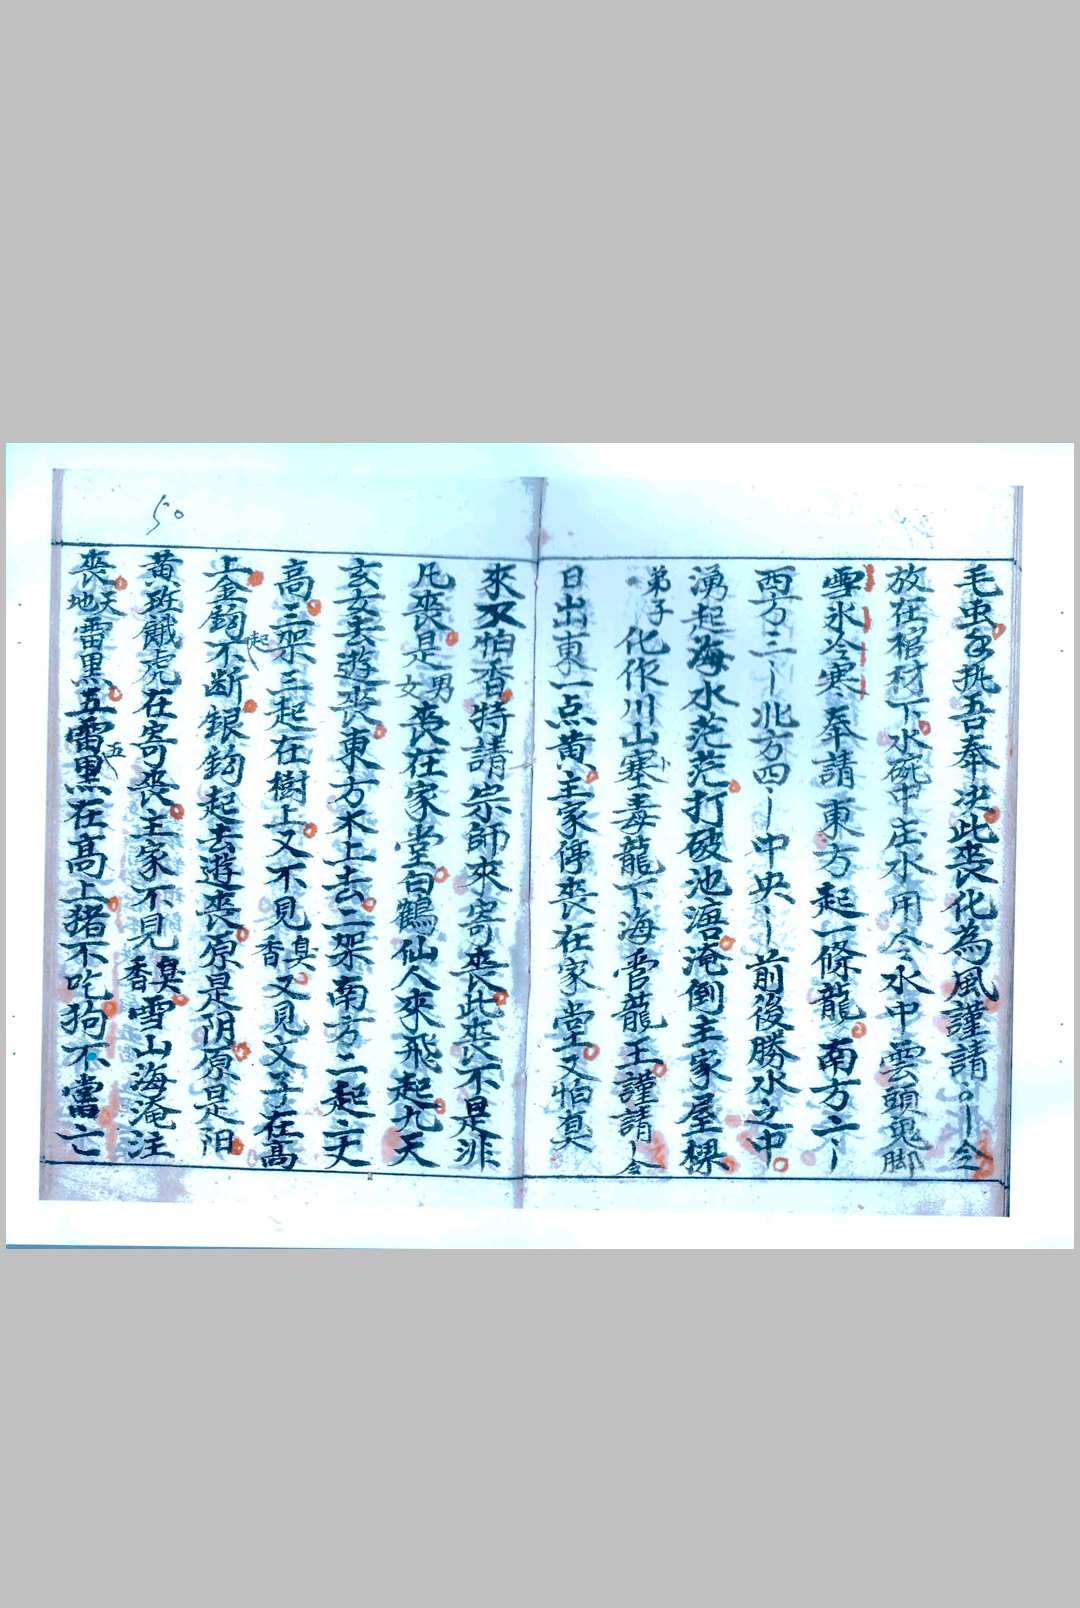 50
毛虫手执吾奉决此丧化為風謹請
放在棺材下水碗中庄水用令水中雲頭鬼脚
雪水冷寒奉請東方起一條龍南方二〡
西方三〡北方四〡中央〡前後勝水之中
湧起海水茫茫打破池溏淹倒主家屋樑
弟子化作川山塞卜毒龍下海雪龍王謹請〡令
日出東一点黄主家停丧在家堂又怕臭
來又怕香特請宗師來寄丧此丧不是非
凡丧是男女丧在家堂白鶴仙人來飛起九天
玄女去遊丧東方木上去二架南方二起二丈
高三架三起在樹上又不見臭香又見文字在高
上金鈎不断起銀鈎起去遊丧原是阴原是阳
黄斑餓虎在寄丧主家不見臭香雪山海淹注
丧天地雷黑五雷五黑在高上猪不吃狗不當亡